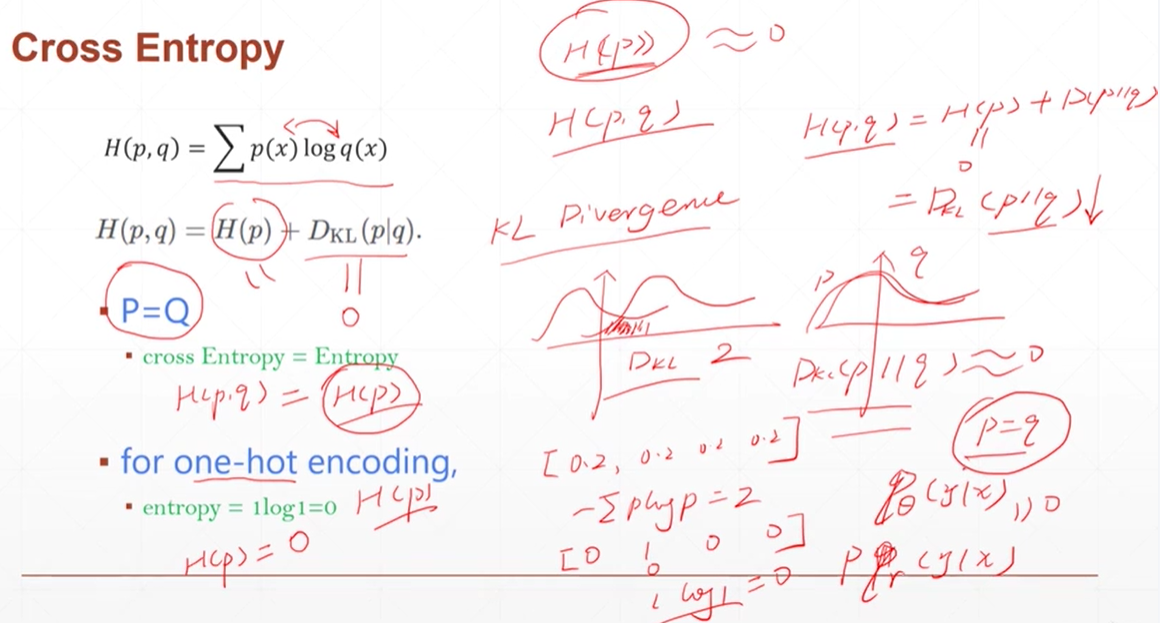 Cross Entropy
H(p, q) = ∑ p(x) log q(x)
H(p, q) = H(p) + D_KL(p|q).
▪ P=Q
▪ cross Entropy = Entropy
H(p,q) = H(p)
▪ for one-hot encoding,
▪ entropy = 1log1=0 H(p)
H(p) = 0
H(p) ≈ 0
H(p,q)
KL Divergence
D_KL 2
[0.2, 0.2 0.2 0.2]
-∑ p log p = 2
[0 1 0 0]
0
1 log 1 = 0
H(p,q) = H(p) + D(p||q)
||
0
= D_KL (p||q) ↓
p q
D_KL(p||q) ≈ 0
p=q
|| 0
|| 0